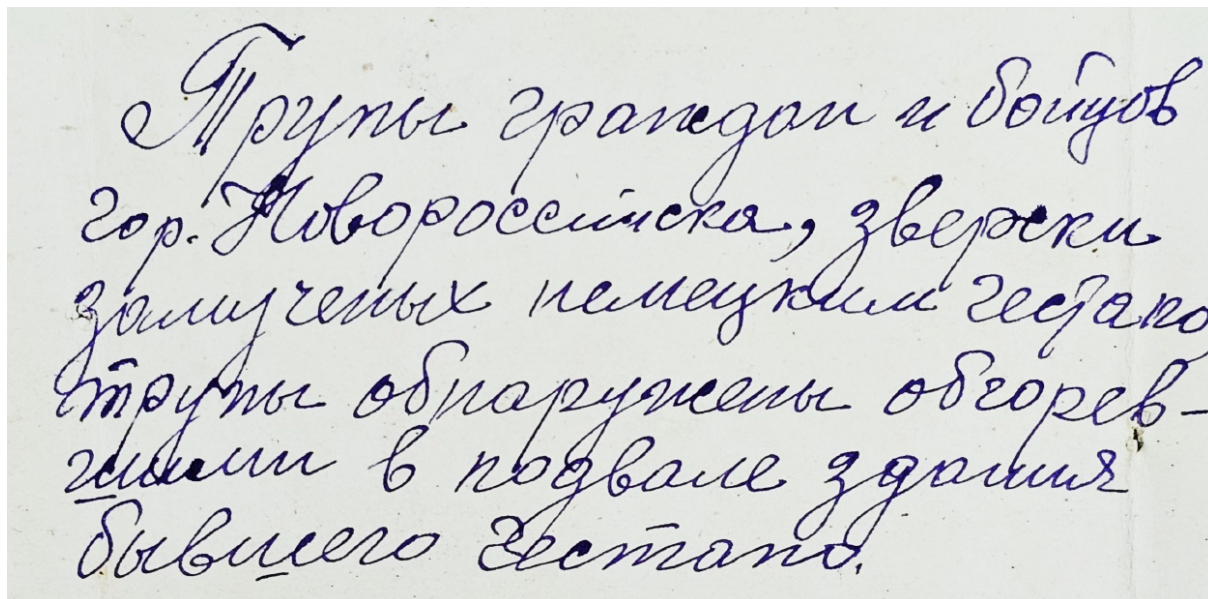 Трупы граждан и бойцов
гор. Новороссийска, зверски
замученых немецким гестапо,
трупы обнаружены обгорев-
шими в подвале здания
бывшего гестапо.